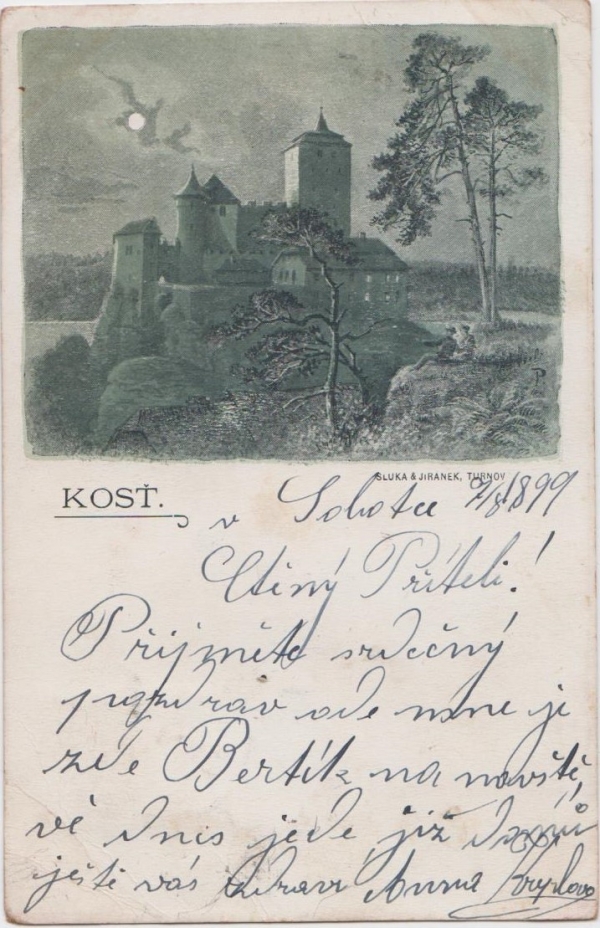 SLUKA & JIRÁNEK, TURNOV
KOSŤ.
v Sobotce 1899
Ctěný Příteli!
Přijměte srdečný
pozdrav ode mne je
zde Bertík na návště
vě dnes jede již domů
ještě vás zdraví Anna